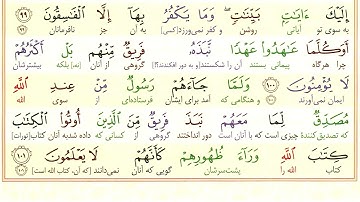 إِلَيْكَ ءَايَٰتٍۭ بَيِّنَٰتٍۖ وَمَا يَكْفُرُ بِهَآ إِلَّا ٱلْفَٰسِقُونَ ٩٩
به سوی تو آیاتی روشن و کفر نمی‌ورزد(کسی) به آن جز نافرمانان
أَوَكُلَّمَا عَٰهَدُوا۟ عَهْدًا نَّبَذَهُۥ فَرِيقٌ مِّنْهُم بَلْ أَكْثَرُهُمْ
چرا هرگاه پیمانی بستند آن را شکستند(و به دور افکندند)؟ گروهی از آنان (نه) بلکه بیشترشان
لَا يُؤْمِنُونَ ١٠٠ وَلَمَّا جَآءَهُمْ رَسُولٌ مِّنْ عِندِ ٱللَّهِ
ایمان نمی‌آورند و هنگامی که آمد برای ایشان فرستاده‌ای از سوی الله
مُصَدِّقٌ لِّمَا مَعَهُمْ نَبَذَ فَرِيقٌ مِّنَ ٱلَّذِينَ أُوتُوا۟ ٱلْكِتَٰبَ
که تصدیق‌کننده چیزی است که با آنان است دور انداختند گروهی از کسانی که داده شدبه آنان کتاب(تورات)
كِتَٰبَ ٱللَّهِ وَرَآءَ ظُهُورِهِمْ كَأَنَّهُمْ لَا يَعْلَمُونَ ١٠١
کتاب الله را پشت‌سرشان گویی که آنان نمی‌دانند (که آن، کتاب الله است)